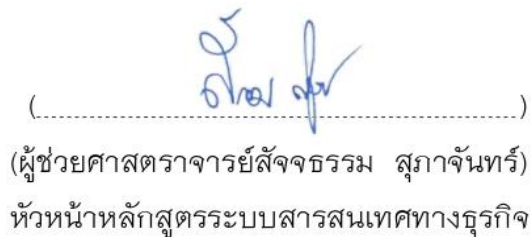 (........................................................)
(ผู้ช่วยศาสตราจารย์สัจจธรรม สุภาจันทร์)
หัวหน้าหลักสูตรระบบสารสนเทศทางธุรกิจ